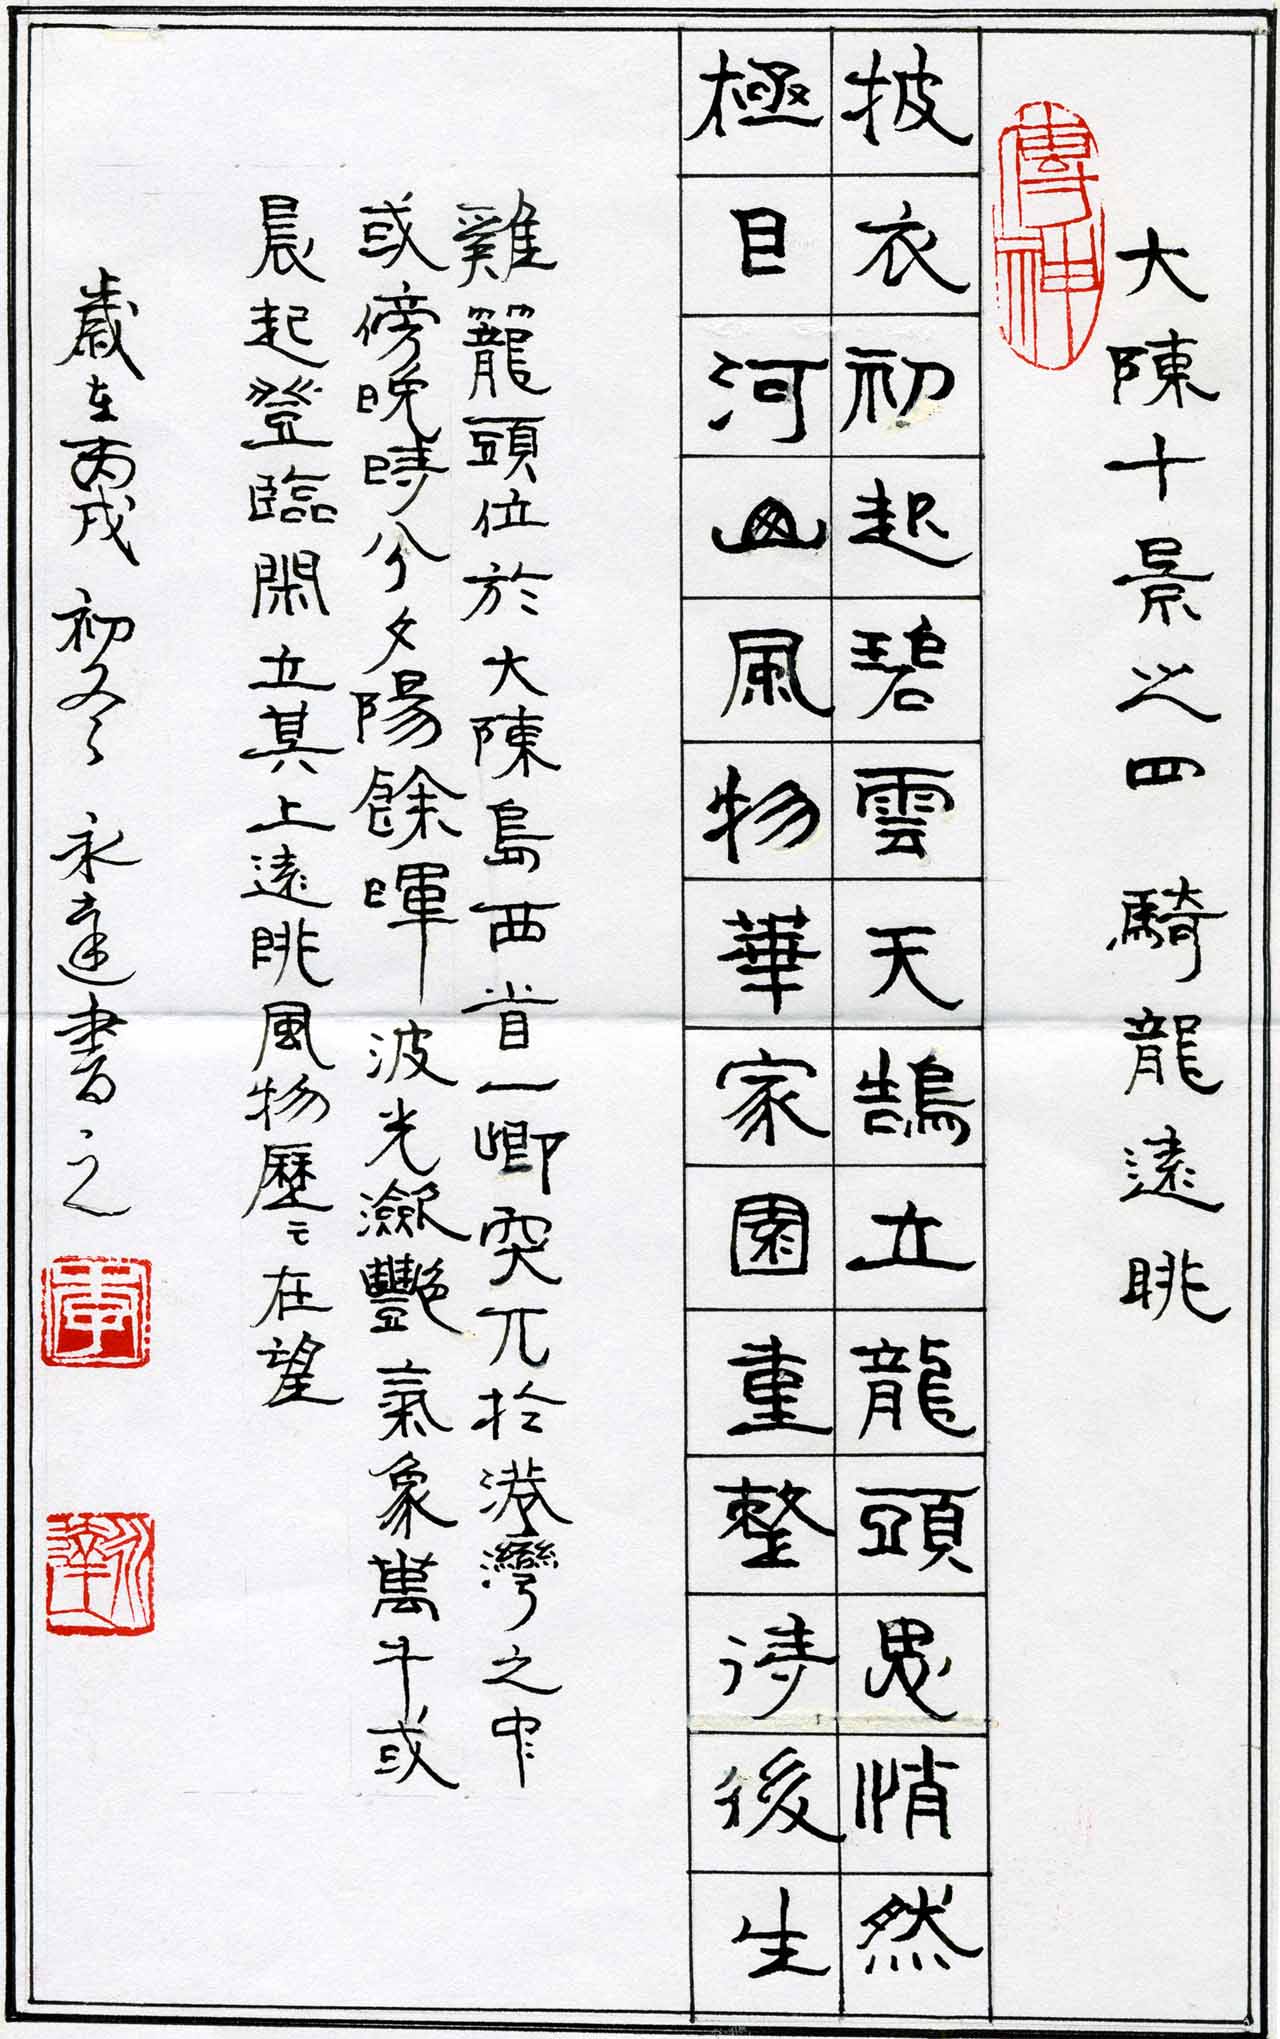 大陳十景之四 騎龍遠眺
傳神
披衣初起碧雲天鵠立龍頭思悄然
極目河山風物華家園重整待後生
雞籠頭位於大陳島西首一岬突兀於港灣之中
或傍晚時分夕陽餘暉波光瀲艷氣象萬千或
晨起登臨閑立其上遠眺風物歷〻在望
歲在丙戌初冬 永達書之
永達